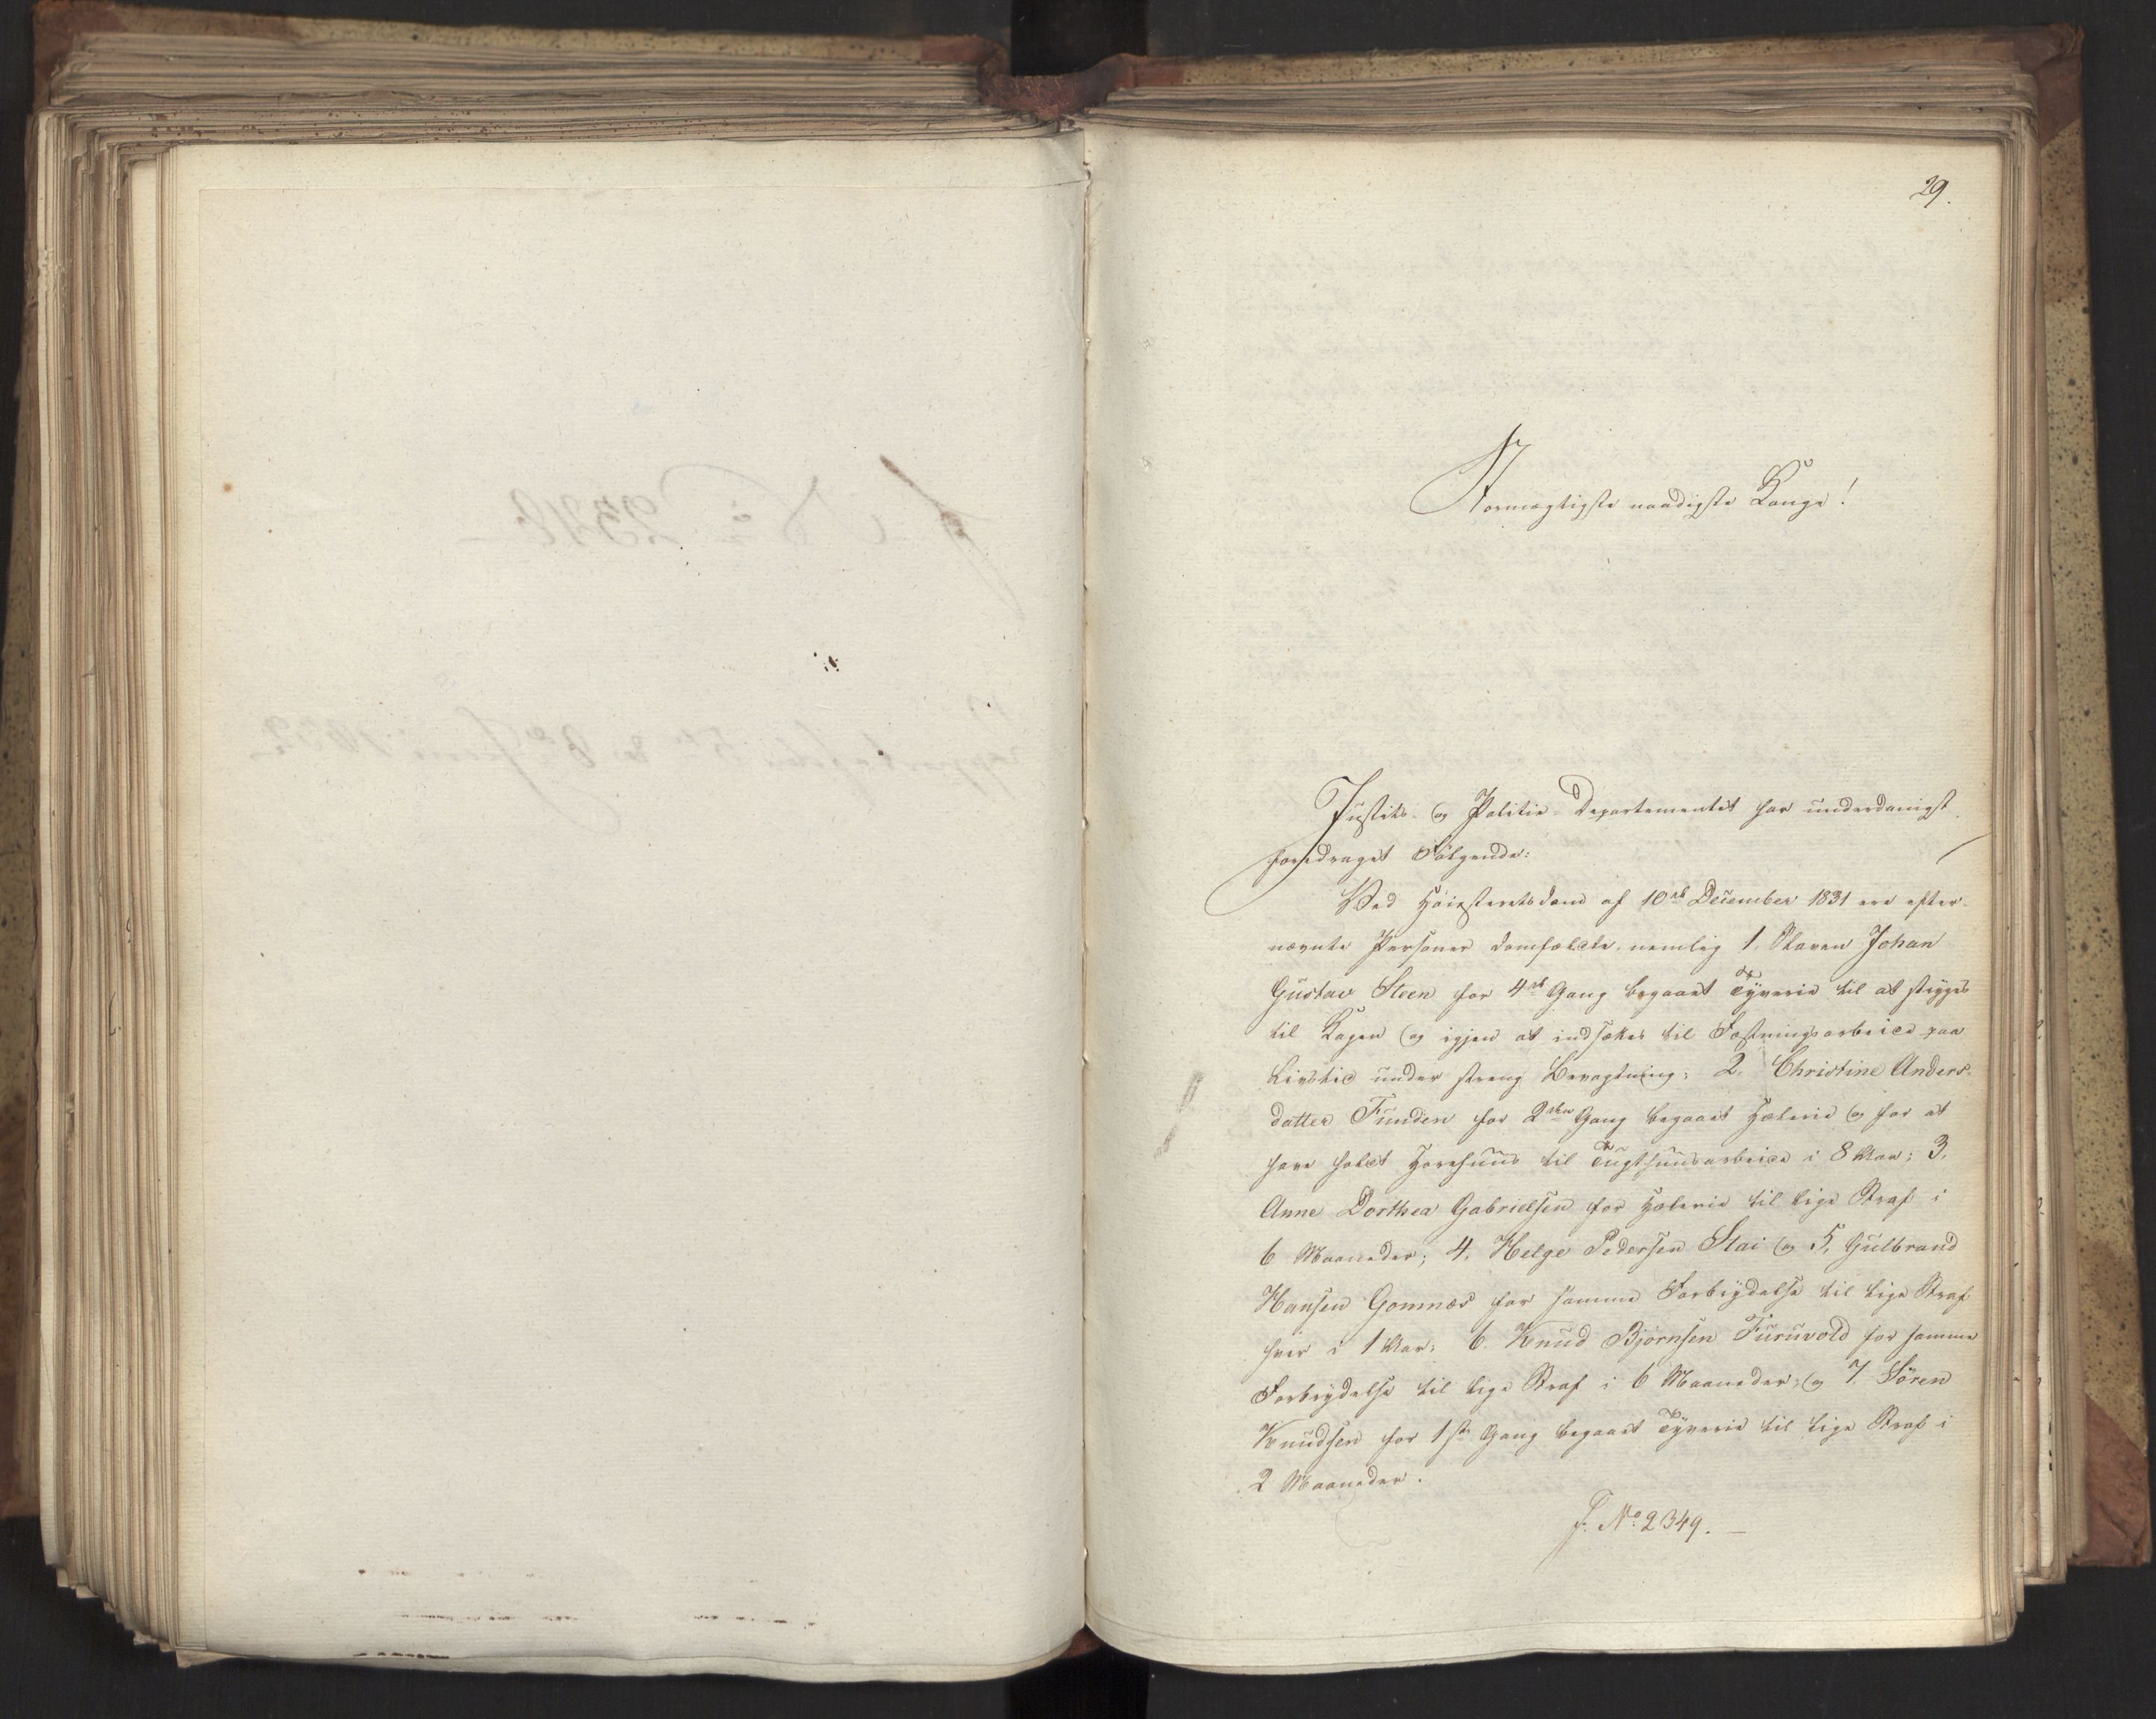 29.
Stormægtigste naadigste Konge!
Justits- og Politie-Departementet har underdanigst
foredraget Følgende:
Ved Høiesteretsdom af 10de December 1831 ere efter-
nævnte Personer domfældte, nemlig 1. Slaven Johan
Gustav Steen for 4de Gang begaaet Tyverie til at stryges
til Kagen og igjen at indsættes til Fæstningsarbeide paa
Livstid under streng Bevogtning; 2. Christine Anders-
datter Funden for 2den Gang begaaet Hæleri og for at
have holdt Horehuus til Tugthuusarbeide i 8 Aar; 3.
Anne Dorthea Gabrielsen for Hælerie til lige Straf i
6 Maaneder; 4. Helge Pedersen Stai og 5. Gulbrand
Hansen Gomnæs for samme Forbrydelse til lige Straf
hver i 1 Aar; 6. Knud Bjørnsen Furuvold for samme
Forbrydelse til lige Straf i 6 Maaneder; og 7. Søren
Knudsen for 1ste Gang begaaet Tyverie til lige Straf i
2 Maaneder.
J. No. 2349.